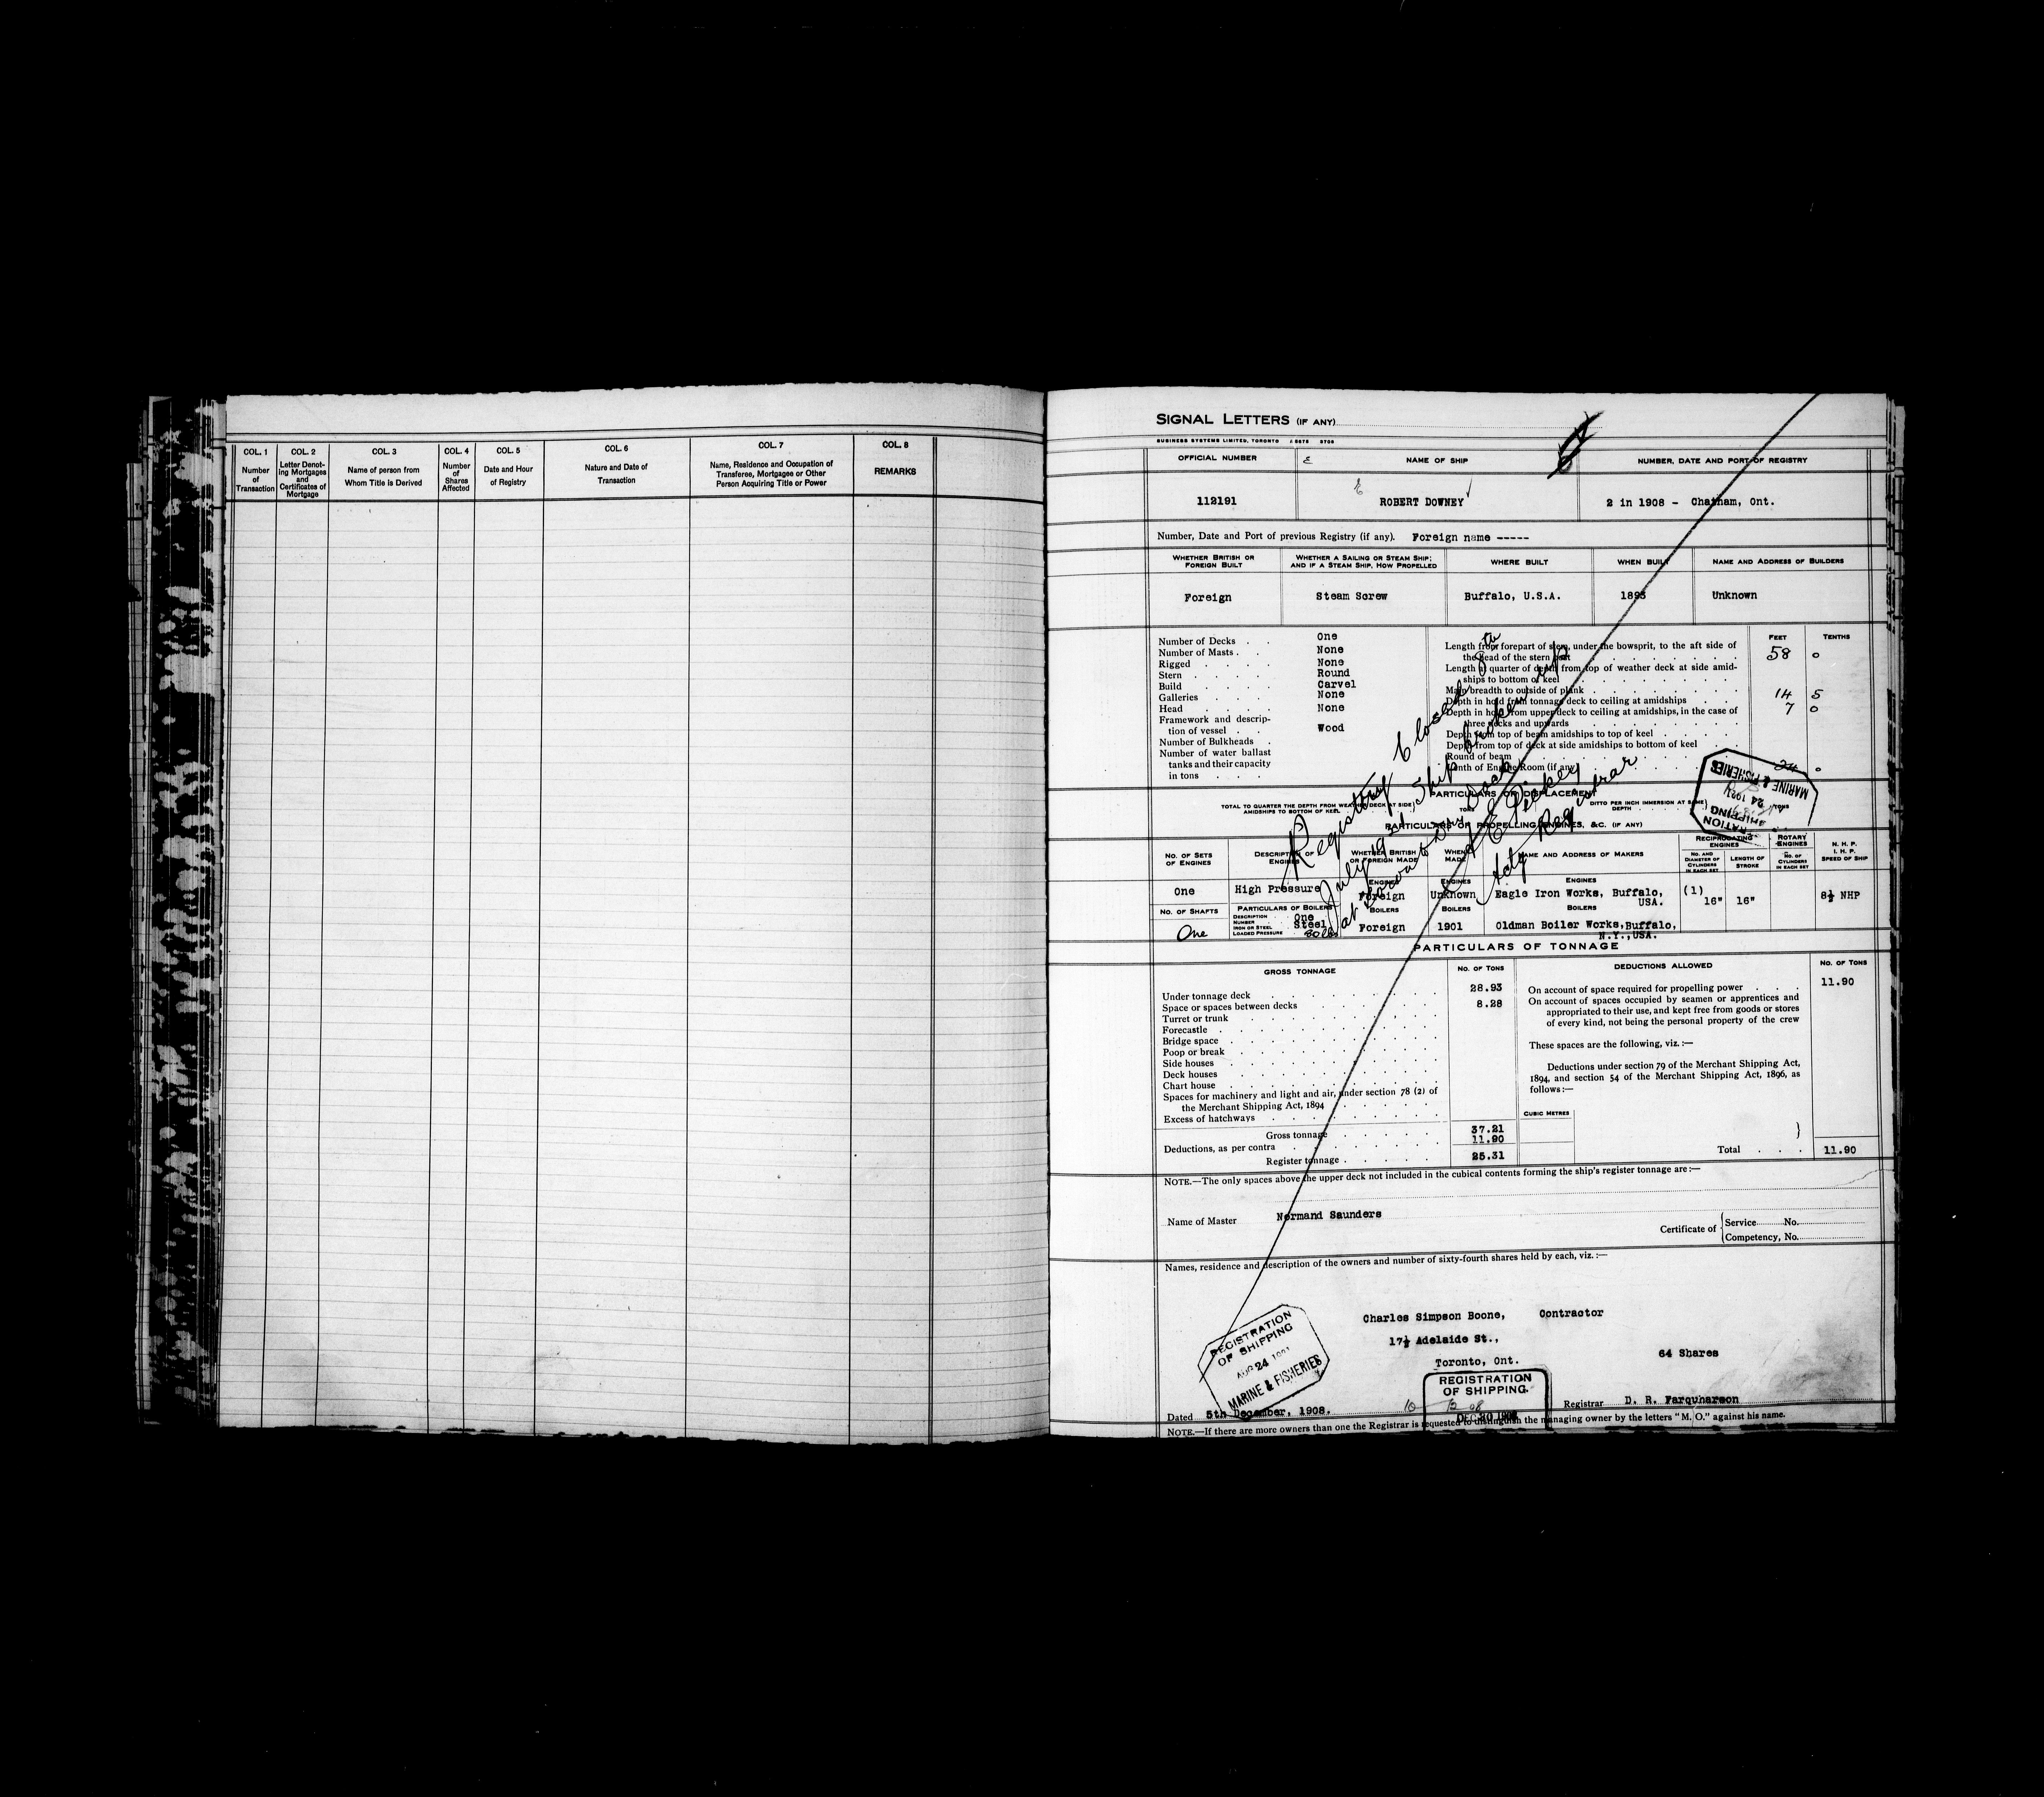 COL. 1
Number
of
Transaction
COL. 2
Letter Denot-
ing Mortgages
and
Certificates of
Mortgage
COL. 3
Name of person from
Whom Title is Derived
COL. 4
Number
of
Shares
Affected
COL. 5
Date and Hour
of Registry
COL. 6
Nature and Date of
Transaction
COL. 7
Name, Residence and Occupation of
Transferee, Mortgagee or Other
Person Acquiring Title or Power
COL. 8
REMARKS
SIGNAL LETTERS (IF ANY)
BUSINESS SYSTEMS LIMITED, TORONTO
OFFICIAL NUMBER
NAME OF SHIP
NUMBER, DATE AND PORT OF REGISTRY
112191
ROBERT DOWNEY
2 in 1908 - Chatham, Ont.
Number, Date and Port of previous Registry (if any). Foreign name -----
WHETHER BRITISH OR
FOREIGN BUILT
WHETHER A SAILING OR STEAM SHIP;
AND IF A STEAM SHIP, HOW PROPELLED
WHERE BUILT
WHEN BUILT
NAME AND ADDRESS OF BUILDERS
Foreign
Steam Screw
Buffalo, U.S.A.
1893
Unknown
Number of Decks . . One
Number of Masts . . None
Rigged . . . . None
Stern . . . . . Round
Build . . . . Carvel
Galleries . . . . None
Head . . . . None
Framework and descrip-
tion of vessel . . Wood
Number of Bulkheads .
Number of water ballast
tanks and their capacity
in tons . . .
FEET TENTHS
Length from forepart of stem, under the bowsprit, to the aft side of
the head of the stern post 58 0
Length at quarter of depth from top of weather deck at side amid-
ships to bottom of keel
Main breadth to outside of plank 14 5
Depth in hold from tonnage deck to ceiling at amidships 7 0
Depth in hold from upper deck to ceiling at amidships, in the case of
three decks and upwards
Depth from top of beam amidships to top of keel
Depth from top of deck at side amidships to bottom of keel
Round of beam
Length of Engine Room (if any) 24 0
Registry closed 8th
July 1921, Ship broken up
at Dry Dock
Actg Registrar
MARINE & FISHERIES
24 1921
PARTICULARS OF DISPLACEMENT
TOTAL TO QUARTER THE DEPTH FROM WEATHER DECK AT SIDE
AMIDSHIPS TO BOTTOM OF KEEL
TONS
DITTO PER INCH IMMERSION AT SAME
DEPTH
PARTICULARS OF PROPELLING ENGINES, &C. (IF ANY)
NO. OF SETS
OF ENGINES
DESCRIPTION OF
ENGINES
WHETHER BRITISH
OR FOREIGN MADE
WHEN
MADE
NAME AND ADDRESS OF MAKERS
RECIPROCATING
ENGINES
ROTARY
ENGINES
NO. AND
DIAMETER OF
CYLINDERS
IN EACH SET
LENGTH OF
STROKE
NO. OF
CYLINDERS
IN EACH SET
N. H. P.
I. H. P.
SPEED OF SHIP
One
High Pressure
ENGINES
Foreign
ENGINES
Unknown
ENGINES
Eagle Iron Works, Buffalo,
USA.
(1)
16"
16"
8½ NHP
NO. OF SHAFTS
One
PARTICULARS OF BOILERS
DESCRIPTION
NUMBER One
IRON OR STEEL Steel
LOADED PRESSURE 80 lbs
BOILERS
Foreign
BOILERS
1901
BOILERS
Oldman Boiler Works, Buffalo,
N.Y., USA.
PARTICULARS OF TONNAGE
GROSS TONNAGE
NO. OF TONS
DEDUCTIONS ALLOWED
NO. OF TONS
Under tonnage deck 28.93
Space or spaces between decks 8.28
Turret or trunk
Forecastle
Bridge space
Poop or break
Side houses
Deck houses
Chart house
Spaces for machinery and light and air, under section 78 (2) of
the Merchant Shipping Act, 1894
Excess of hatchways
Gross tonnage 37.21
Deductions, as per contra 11.90
Register tonnage 25.31
On account of space required for propelling power 11.90
On account of spaces occupied by seamen or apprentices and
appropriated to their use, and kept free from goods or stores
of every kind, not being the personal property of the crew
These spaces are the following, viz. :—
Deductions under section 79 of the Merchant Shipping Act,
1894, and section 54 of the Merchant Shipping Act, 1896, as
follows:—
CUBIC METRES
Total . . . 11.90
NOTE.—The only spaces above the upper deck not included in the cubical contents forming the ship's register tonnage are:—
Name of Master Normand Saunders
Certificate of
Service No.
Competency, No.
Names, residence and description of the owners and number of sixty-fourth shares held by each, viz. :—
Charles Simpson Boone, Contractor
17½ Adelaide St.,
Toronto, Ont.
64 Shares
REGISTRATION
OF SHIPPING
AUG 24 1921
MARINE & FISHERIES
REGISTRATION
OF SHIPPING.
DEC 10 1908
10 12 08
Dated 5th December, 1908.
Registrar D. R. Farquharson
NOTE.—If there are more owners than one the Registrar is requested to distinguish the managing owner by the letters "M. O." against his name.